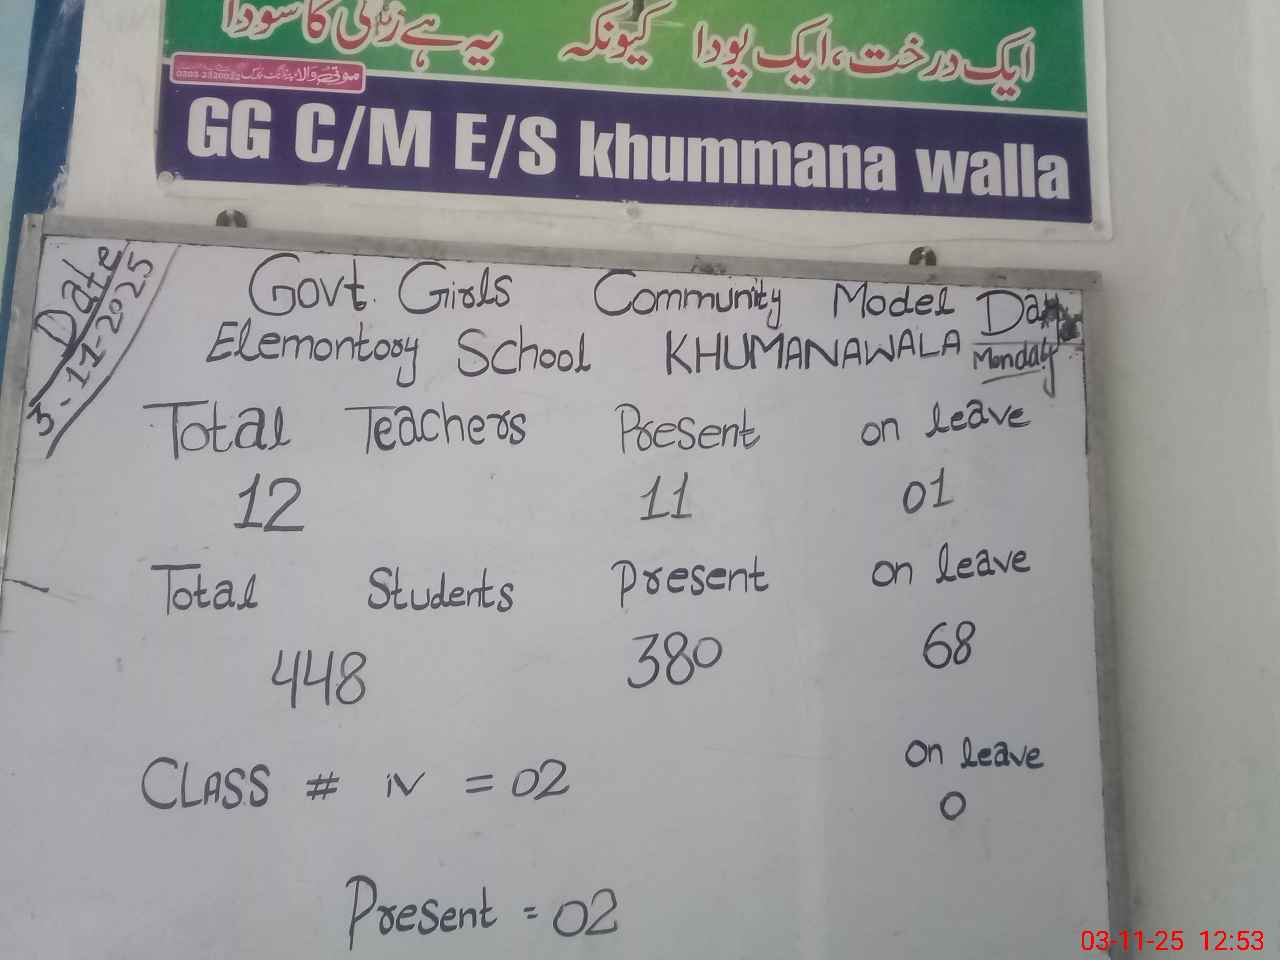 ایک درخت، ایک پودا کیونکہ یہ ہے زندگی کا سودا
GG C/M E/S khummana walla
Date
3-11-2025
Govt. Girls Community Model
Elemontory School KHUMANAWALA
Monday
Total Teachers Present on leave
12 11 01
Total Students Present on leave
448 380 68
On leave
CLASS # iv = 02 0
Present = 02
03-11-25 12:53